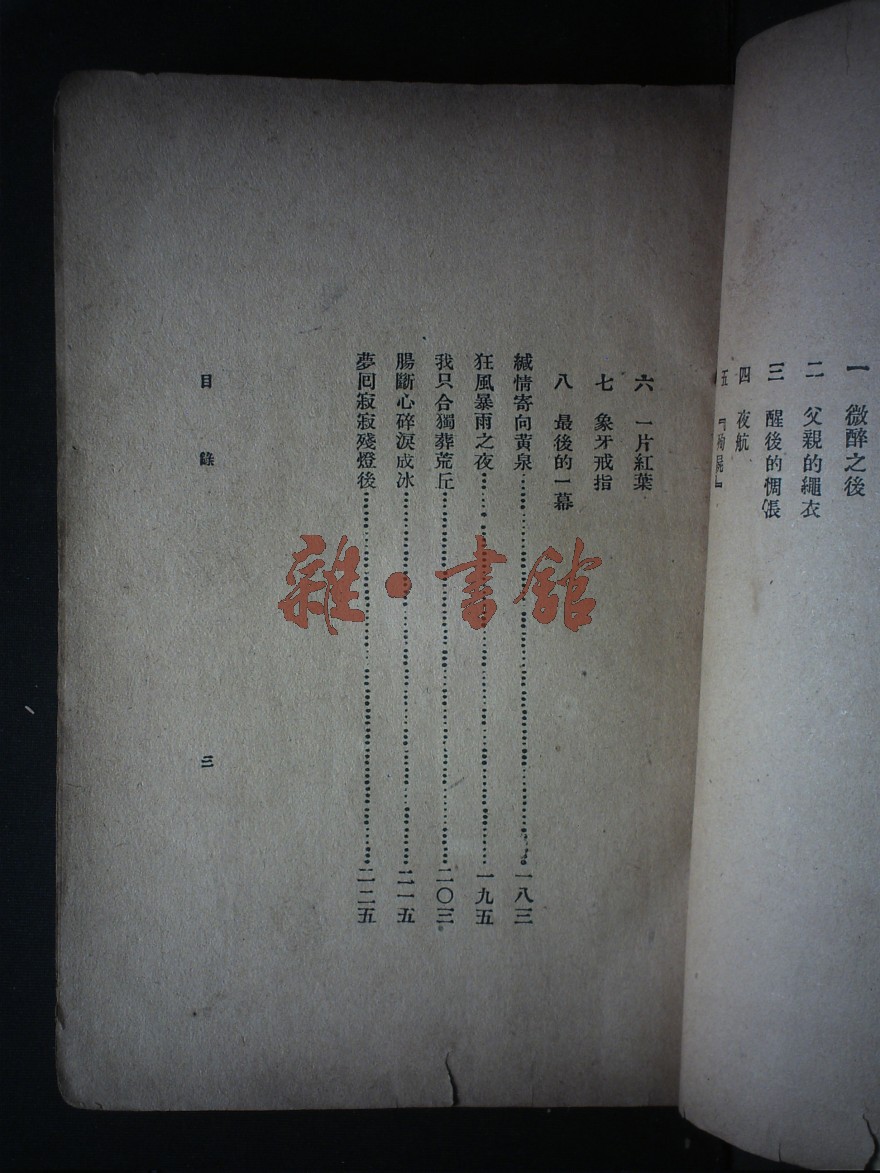 一　微醉之後
二　父親的繩衣
三　醒後的惆悵
四　夜航
五　『殉屍』
六　一片紅葉
七　象牙戒指
八　最後的一幕
緘情寄向黃泉……一八三
狂風暴雨之夜……一九五
我只合獨葬荒丘……二〇三
腸斷心碎淚成冰……二一五
夢回寂寂殘燈後……二二五
目錄　三
雜·書館